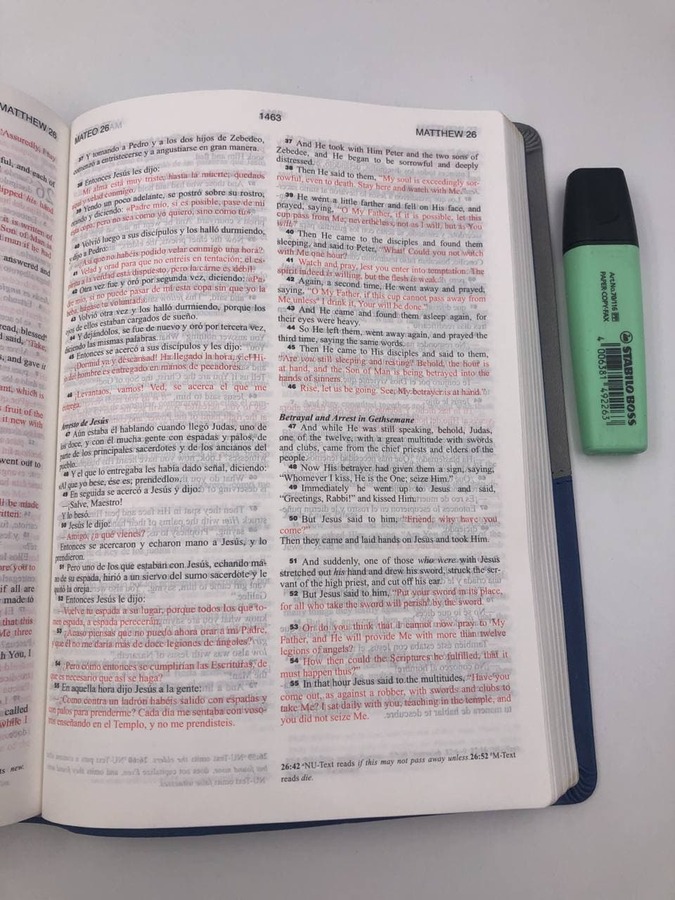 MATTHEW 26
MATEO 26
1463
MATTHEW 26
37 Y tomando a Pedro y a los dos hijos de Zebedeo,
comenzó a entristecerse y a angustiarse en gran manera.
38 Entonces Jesús les dijo:
—Mi alma está muy triste, hasta la muerte; quedaos
aquí y velad conmigo.
39 Yendo un poco adelante, se postró sobre su rostro,
orando y diciendo: «Padre mío, si es posible, pase de mí
esta copa; pero no sea como yo quiero, sino como tú».
40 Volvió luego a sus discípulos y los halló durmiendo,
y dijo a Pedro:
—¿Así que no habéis podido velar conmigo una hora?
41 Velad y orad para que no entréis en tentación; el es-
píritu a la verdad está dispuesto, pero la carne es débil.
42 Otra vez fue y oró por segunda vez, diciendo: «Pa-
dre mío, si no puede pasar de mí esta copa sin que yo la
beba, hágase tu voluntad».
43 Volvió otra vez y los halló durmiendo, porque los
ojos de ellos estaban cargados de sueño.
44 Y dejándolos, se fue de nuevo y oró por tercera vez,
diciendo las mismas palabras.
45 Entonces se acercó a sus discípulos y les dijo:
—¡Dormid ya y descansad! Ha llegado la hora, y el Hi-
jo del hombre es entregado en manos de pecadores.
46 ¡Levantaos, vamos! Ved, se acerca el que me
entrega.
Arresto de Jesús
47 Aún estaba él hablando cuando llegó Judas, uno de
los doce, y con él mucha gente con espadas y palos, de
parte de los principales sacerdotes y de los ancianos del
pueblo.
48 Y el que lo entregaba les había dado señal, diciendo:
«Al que yo bese, ése es; prendedlo».
49 En seguida se acercó a Jesús y dijo:
—¡Salve, Maestro!
Y lo besó.
50 Jesús le dijo:
—Amigo, ¿a qué vienes?
Entonces se acercaron y echaron mano a Jesús, y lo
prendieron.
51 Pero uno de los que estaban con Jesús, echando ma-
no de su espada, hirió a un siervo del sumo sacerdote y le
quitó la oreja.
52 Entonces Jesús le dijo:
—Vuelve tu espada a su lugar, porque todos los que to-
men espada, a espada perecerán.
53 ¿Acaso piensas que no puedo ahora orar a mi Padre,
y que él no me daría más de doce legiones de ángeles?
54 Pero ¿cómo entonces se cumplirían las Escrituras, de
que es necesario que así se haga?
55 En aquella hora dijo Jesús a la gente:
—¿Como contra un ladrón habéis salido con espadas y
con palos para prenderme? Cada día me sentaba con voso-
tros enseñando en el Templo, y no me prendisteis.
37 And He took with Him Peter and the two sons of
Zebedee, and He began to be sorrowful and deeply
distressed.
38 Then He said to them, "My soul is exceedingly sor-
rowful, even to death. Stay here and watch with Me."
39 He went a little farther and fell on His face, and
prayed, saying, "O My Father, if it is possible, let this
cup pass from Me; nevertheless, not as I will, but as You
will."
40 Then He came to the disciples and found them
sleeping, and said to Peter, "What! Could you not watch
with Me one hour?
41 Watch and pray, lest you enter into temptation. The
spirit indeed is willing, but the flesh is weak."
42 Again, a second time, He went away and prayed,
saying, "O My Father, if this cup cannot pass away from
Me unless I drink it, Your will be done."
43 And He came and found them asleep again, for
their eyes were heavy.
44 So He left them, went away again, and prayed the
third time, saying the same words.
45 Then He came to His disciples and said to them,
"Are you still sleeping and resting? Behold, the hour is
at hand, and the Son of Man is being betrayed into the
hands of sinners.
46 Rise, let us be going. See, My betrayer is at hand."
Betrayal and Arrest in Gethsemane
47 And while He was still speaking, behold, Judas,
one of the twelve, with a great multitude with swords
and clubs, came from the chief priests and elders of the
people.
48 Now His betrayer had given them a sign, saying,
"Whomever I kiss, He is the One; seize Him."
49 Immediately he went up to Jesus and said,
"Greetings, Rabbi!" and kissed Him.
50 But Jesus said to him, "Friend, why have you
come?"
Then they came and laid hands on Jesus and took Him.
51 And suddenly, one of those who were with Jesus
stretched out his hand and drew his sword, struck the ser-
vant of the high priest, and cut off his ear.
52 But Jesus said to him, "Put your sword in its place,
for all who take the sword will perish by the sword.
53 Or do you think that I cannot now pray to My
Father, and He will provide Me with more than twelve
legions of angels?
54 How then could the Scriptures be fulfilled, that it
must happen thus?"
55 In that hour Jesus said to the multitudes, "Have you
come out, as against a robber, with swords and clubs to
take Me? I sat daily with you, teaching in the temple, and
you did not seize Me.
26:42 NU-Text reads if this may not pass away unless 26:52 M-Text
reads die.
STABILO BOSS
Art.No.70/116
PAPER-COPY-FAX
4 006381 492263